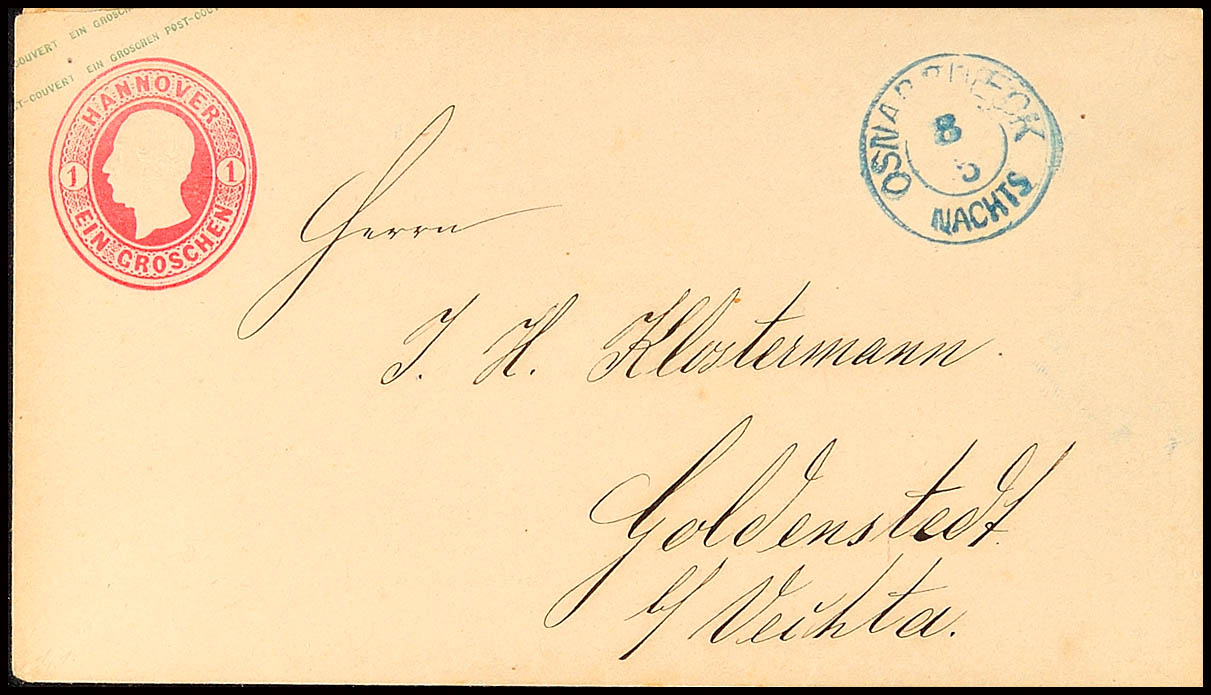 COUVERT EIN GROSCHEN
ST-COUVERT EIN GROSCHEN POST-COUV
HANNOVER
1 1
EIN GROSCHEN
OSNABRUECK
8
5
NACHTS
Herrn
J. H. Klostermann
Goldenstedt
b/ Vechta.